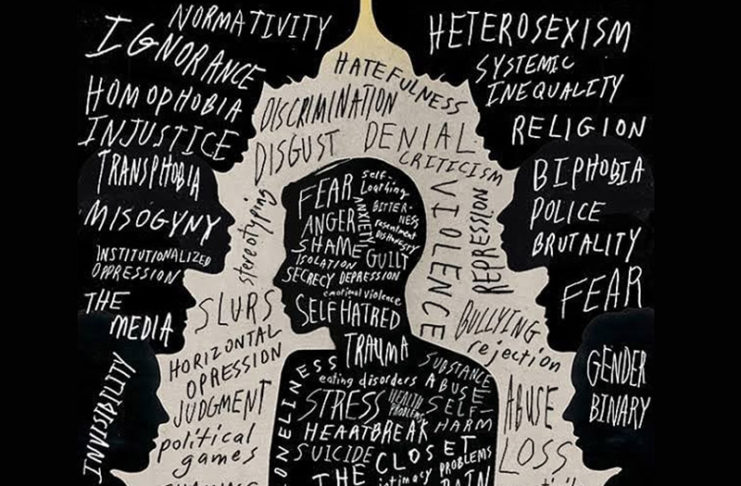 NORMATIVITY
IGNORANCE
HOMOPHOBIA
INJUSTICE
TRANSPHOBIA
MISOGYNY
INSTITUTIONALIZED
OPPRESSION
THE
MEDIA
INVISIBILITY
HETEROSEXISM
SYSTEMIC
INEQUALITY
RELIGION
BIPHOBIA
POLICE
BRUTALITY
FEAR
GENDER
BINARY
HATEFULNESS
DISCRIMINATION
DISGUST
DENIAL
CRITICISM
stereotyping
VIOLENCE
REPRESSION
SLURS
HORIZONTAL
OPRESSION
JUDGMENT
political
games
BULLYING
rejection
ABUSE
LOSS
FEAR
self-
Loathing
ANGER
ANXIETY
BITTER-
NESS
resentment
DISHONESTY
SHAME
GUILT
ISOLATION
SECRECY
DEPRESSION
emotional violence
SELF HATRED
TRAUMA
LONELINESS
SUBSTANCE
ABUSE
eating disorders
STRESS
HEALTH
PROBLEMS
SELF-
HARM
HEARTBREAK
SUICIDE
THE CLOSET
intimacy PROBLEMS
PAIN